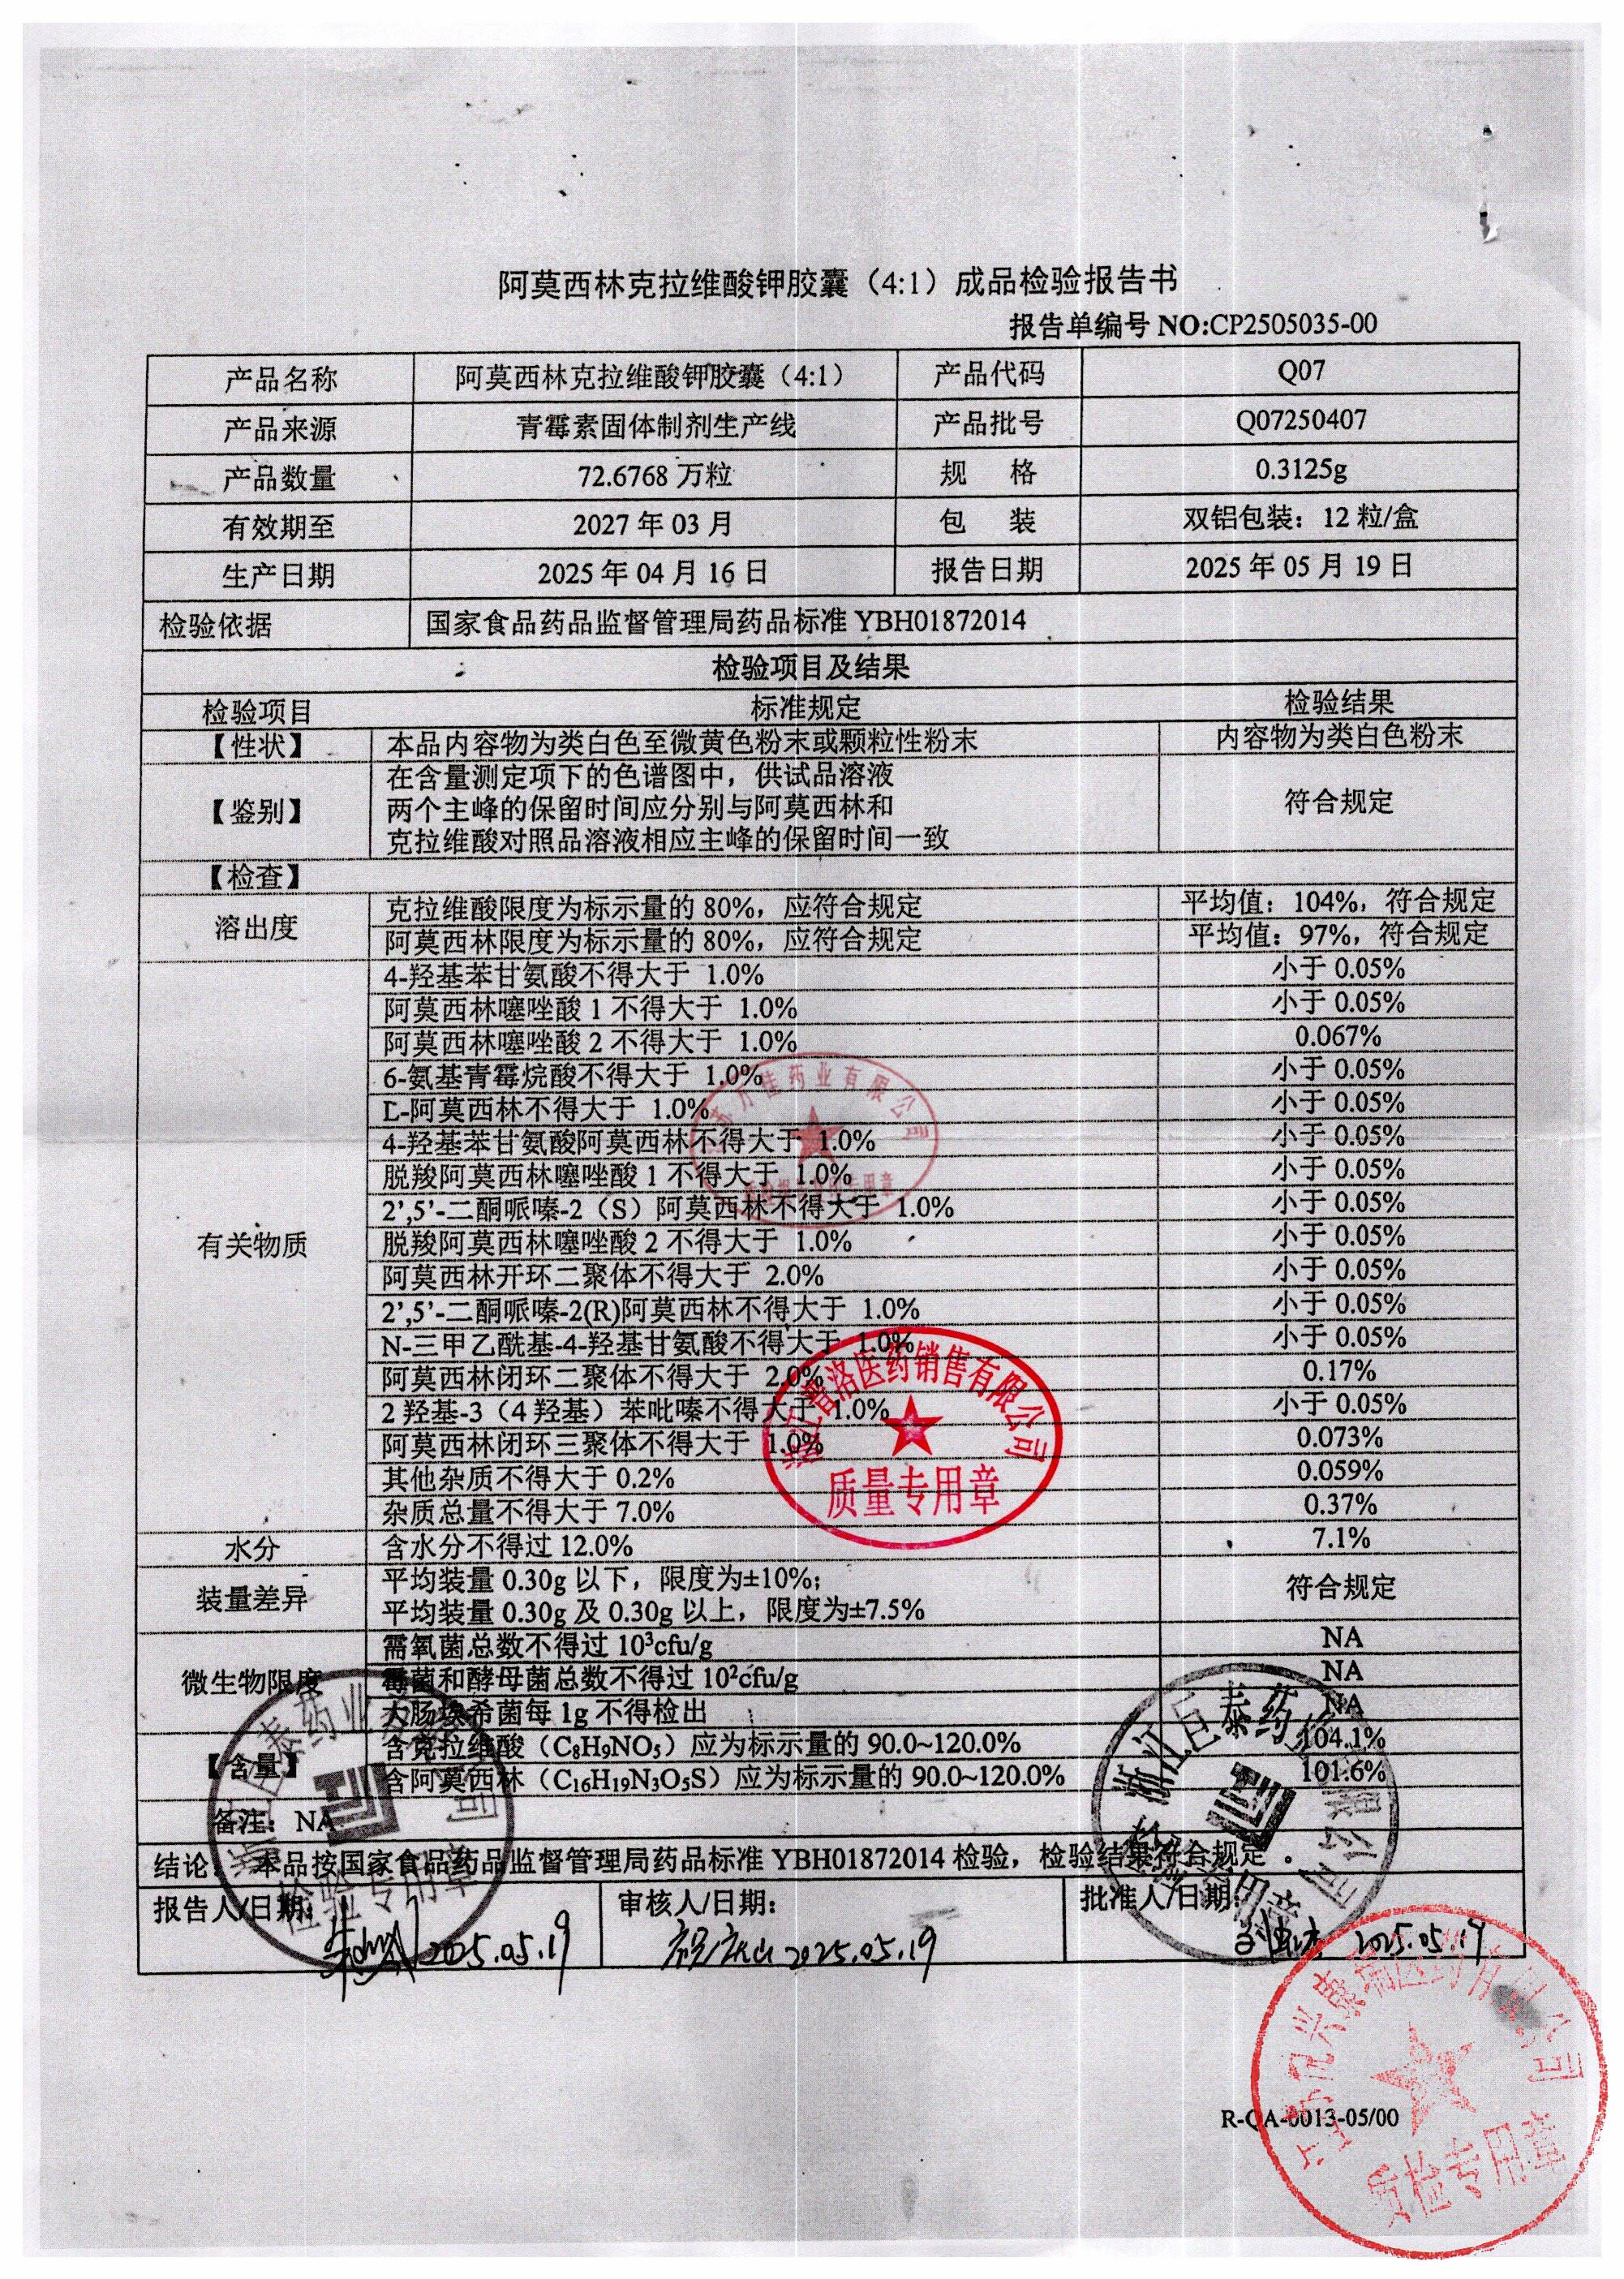 阿莫西林克拉维酸钾胶囊（4:1）成品检验报告书
报告单编号 NO:CP2505035-00
产品名称 阿莫西林克拉维酸钾胶囊（4:1） 产品代码 Q07
产品来源 青霉素固体制剂生产线 产品批号 Q07250407
产品数量 72.6768 万粒 规 格 0.3125g
有效期至 2027 年 03 月 包 装 双铝包装：12 粒/盒
生产日期 2025 年 04 月 16 日 报告日期 2025 年 05 月 19 日
检验依据 国家食品药品监督管理局药品标准 YBH01872014
检验项目及结果
检验项目 标准规定 检验结果
【性状】 本品内容物为类白色至微黄色粉末或颗粒性粉末 内容物为类白色粉末
在含量测定项下的色谱图中，供试品溶液
【鉴别】 两个主峰的保留时间应分别与阿莫西林和 符合规定
克拉维酸对照品溶液相应主峰的保留时间一致
【检查】
溶出度 克拉维酸限度为标示量的 80%，应符合规定 平均值：104%，符合规定
阿莫西林限度为标示量的 80%，应符合规定 平均值：97%，符合规定
有关物质
4-羟基苯甘氨酸不得大于 1.0% 小于 0.05%
阿莫西林噻唑酸 1 不得大于 1.0% 小于 0.05%
阿莫西林噻唑酸 2 不得大于 1.0% 0.067%
6-氨基青霉烷酸不得大于 1.0% 小于 0.05%
L-阿莫西林不得大于 1.0% 小于 0.05%
4-羟基苯甘氨酸阿莫西林不得大于 1.0% 小于 0.05%
脱羧阿莫西林噻唑酸 1 不得大于 1.0% 小于 0.05%
2’,5’-二酮哌嗪-2（S）阿莫西林不得大于 1.0% 小于 0.05%
脱羧阿莫西林噻唑酸 2 不得大于 1.0% 小于 0.05%
阿莫西林开环二聚体不得大于 2.0% 小于 0.05%
2’,5’-二酮哌嗪-2(R)阿莫西林不得大于 1.0% 小于 0.05%
N-三甲乙酰基-4-羟基甘氨酸不得大于 1.0% 小于 0.05%
阿莫西林闭环二聚体不得大于 2.0% 0.17%
2 羟基-3（4 羟基）苯吡嗪不得大于 1.0% 小于 0.05%
阿莫西林闭环三聚体不得大于 1.0% 0.073%
其他杂质不得大于 0.2% 0.059%
杂质总量不得大于 7.0% 0.37%
水分 含水分不得过 12.0% 7.1%
装量差异 平均装量 0.30g 以下，限度为±10%； 符合规定
平均装量 0.30g 及 0.30g 以上，限度为±7.5%
微生物限度
需氧菌总数不得过 10³cfu/g NA
霉菌和酵母菌总数不得过 10²cfu/g NA
大肠埃希菌每 1g 不得检出 NA
【含量】
含克拉维酸（C₈H₉NO₅）应为标示量的 90.0~120.0% 104.1%
含阿莫西林（C₁₆H₁₉N₃O₅S）应为标示量的 90.0~120.0% 101.6%
备注：NA
结论： 本品按国家食品药品监督管理局药品标准 YBH01872014 检验，检验结果符合规定 。
报告人/日期： 审核人/日期： 批准人/日期：
2025.05.19 2025.05.19 2025.05.19
R-QA-0013-05/00
浙江普洛医药销售有限公司
质量专用章
浙江巨泰药业有限公司
检验专用章
浙江巨泰药业有限公司
质检专用章